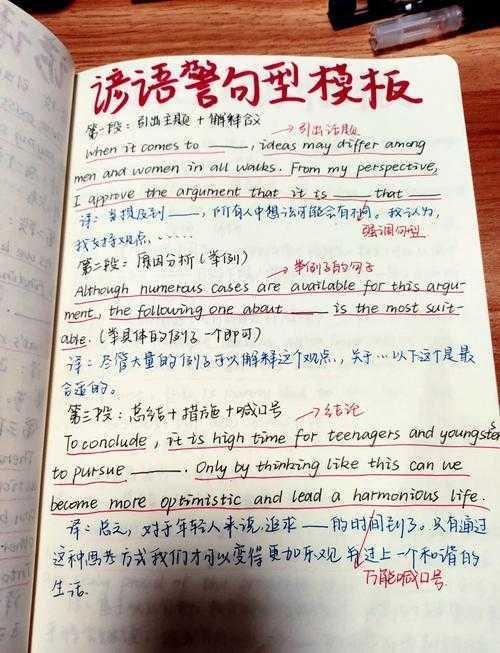 谚语警句型模板
第一段：引出主题 + 解释含义
→引出话题
when it comes to ____, ideas may differ among
men and women in all walks. From my perspective,
I approve the argument that it is ____ that ____
译：当提及到____，所有人中想法可能会有不同。我认为，
强调句型
我支持观点......
第二段：原因分析（举例）
→举例子的句子
Although numerous cases are available for this argu-
ment, the following one about ____ is the most suit-
able.（举具体的例子一个即可）
译：尽管大量的例子可以解释这个观点，关于...以下这个是最
合适的。
第三段：总结+措施+喊口号
→结论
To conclude, it is high time for teenagers and youngsters
to pursue ____. Only by thinking like this can we
become more optimistic and lead a harmonious life.
译：总之，对于年轻人来说，追求____的时间到了。只有通过
这种思考方式我们才可以变得更加乐观并过上一个和谐的
生活.
万能喊口号